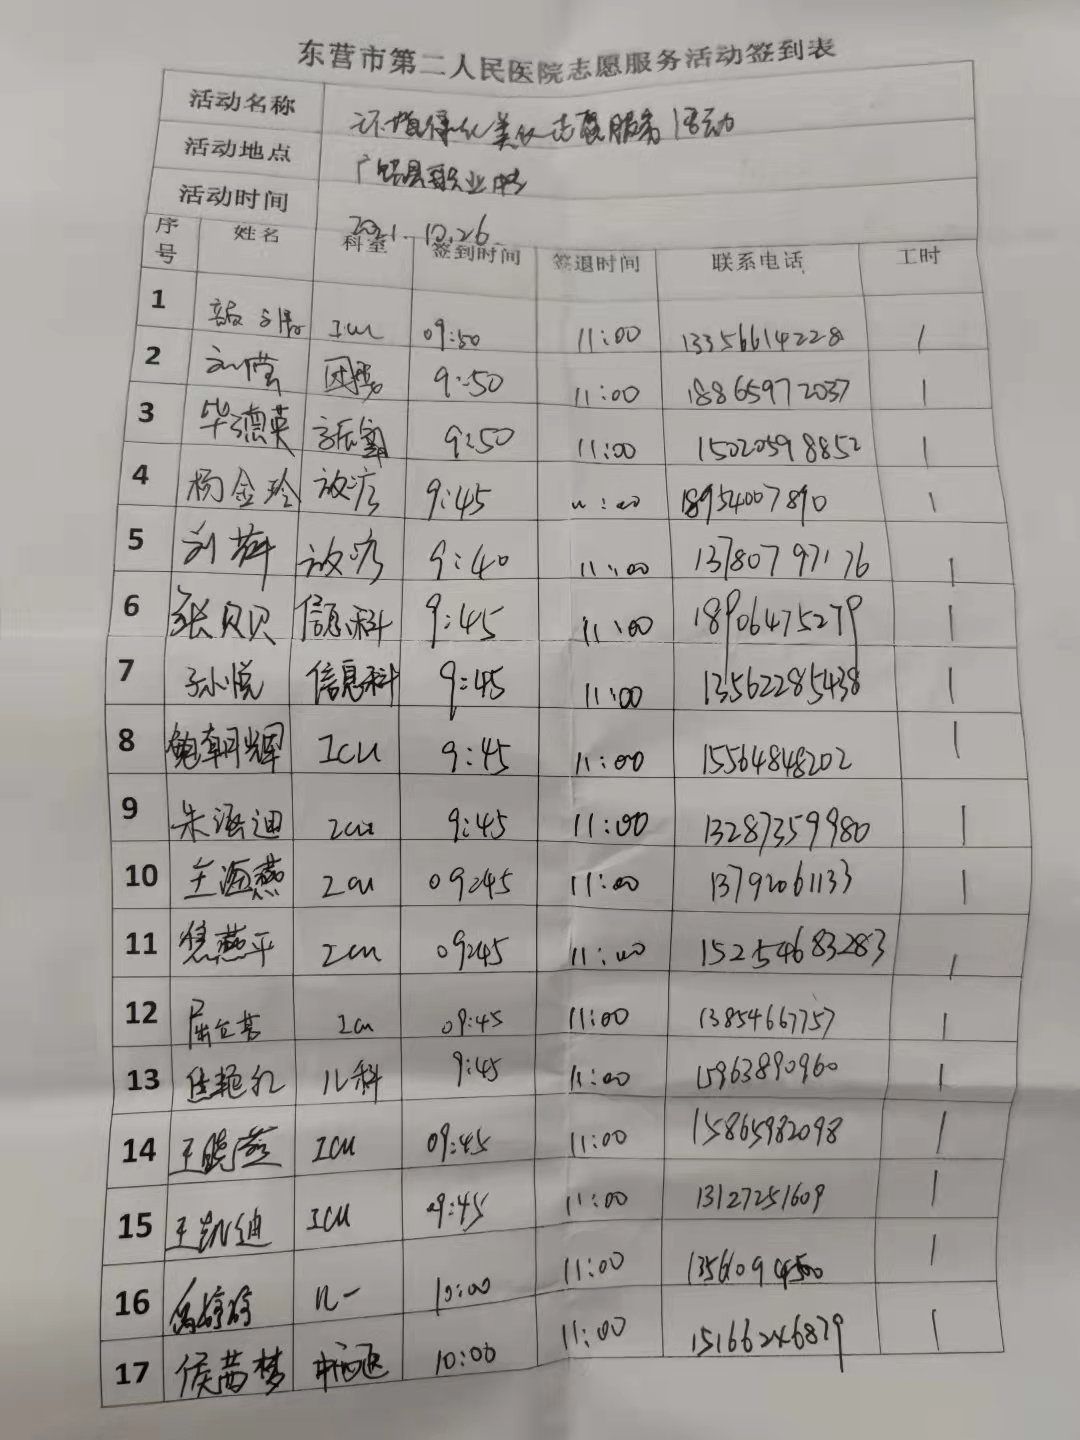 东营市第二人民医院志愿服务活动签到表
活动名称 环境净化美化志愿服务活动
活动地点 广饶县职业中专
活动时间 2021.10.26
序号 姓名 科室 签到时间 签退时间 联系电话 工时
1 ICU 09:50 11:00 13356614228 1
2 刘莹 9:50 11:00 18865972037 1
3 毕德英 9:50 11:00 15020598852 1
4 杨金玲 放疗 9:45 11:00 18954007890 1
5 放疗 9:40 11:00 13780797176 1
6 张贝贝 信息科 9:45 11:00 18906475279 1
7 孙悦 信息科 9:45 11:00 13562285438 1
8 鲍朝辉 ICU 9:45 11:00 15564848202 1
9 朱海迪 ICU 9:45 11:00 13287359980 1
10 王海燕 ICU 09:45 11:00 13792061133 1
11 燕平 ICU 09:45 11:00 15254683283 1
12 ICU 09:45 11:00 13854667757 1
13 儿科 9:45 11:00 15963890960 1
14 王晓燕 ICU 09:45 11:00 15865982098 1
15 王凯迪 ICU 09:45 11:00 13127251609 1
16 儿一 10:00 11:00 1
17 侯茜梦 10:00 11:00 15166246879 1